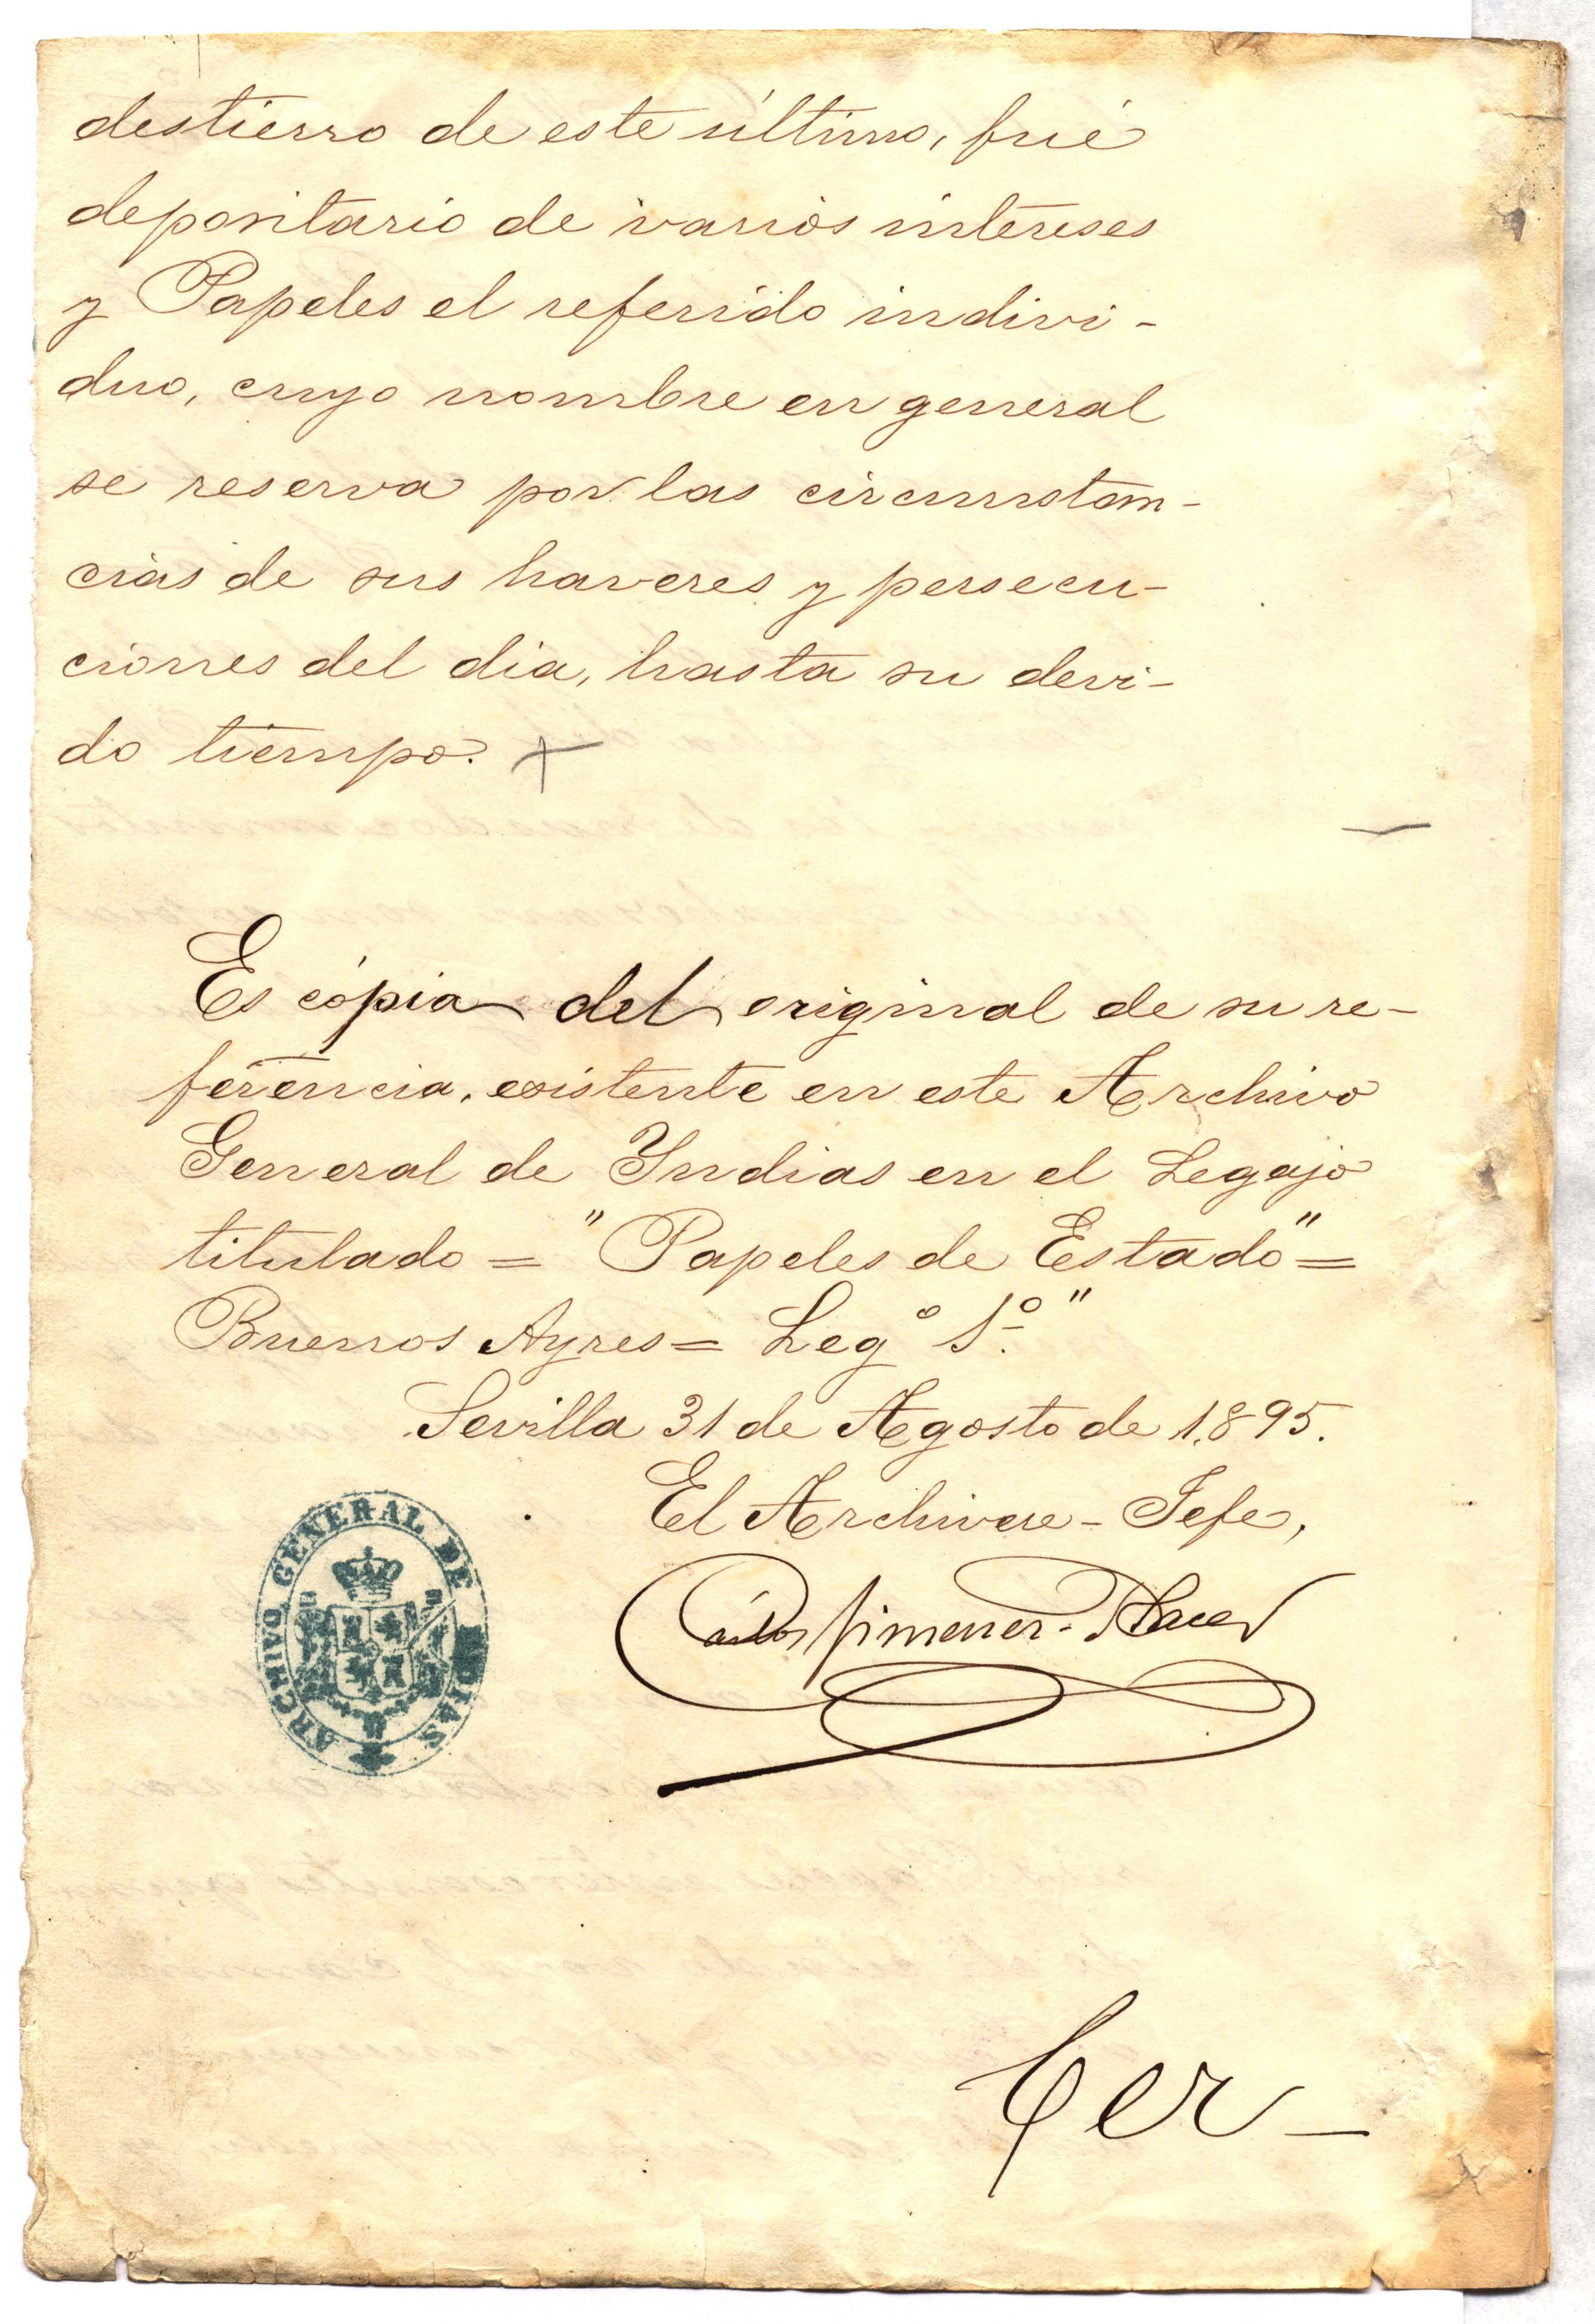 destierro de este último, fué
depositario de varios intereses
y Papeles el referido indivi-
duo, cuyo nombre en general
se reserva por las circunstan-
cias de sus haveres y persecu-
ciones del dia, hasta su devi-
do tiempo.
Es cópia del original de su re-
ferencia, existente en este Archivo
General de Yndias en el Legajo
titulado = "Papeles de Estado" =
Buenos Ayres = Leg.º 1º."
Sevilla 31 de Agosto de 1.895.
El Archivero-Jefe,
Cárlos Jimenez-Placer
ARCHIVO GENERAL DE INDIAS
Cer-